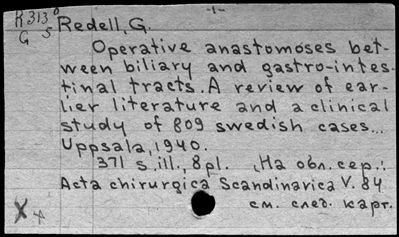 -1-
R 3130 Redell, G.
G 5
Operative anastomoses bet-
ween biliary and gastro-intes-
tinal tracts. A review of ear-
lier literature and a clinical
study of 809 swedish cases...
Uppsala, 1940.
371 s., ill., 8 pl. (На обл. сер.:
Acta chirurgica Scandinavica V. 84
см. след. карт.